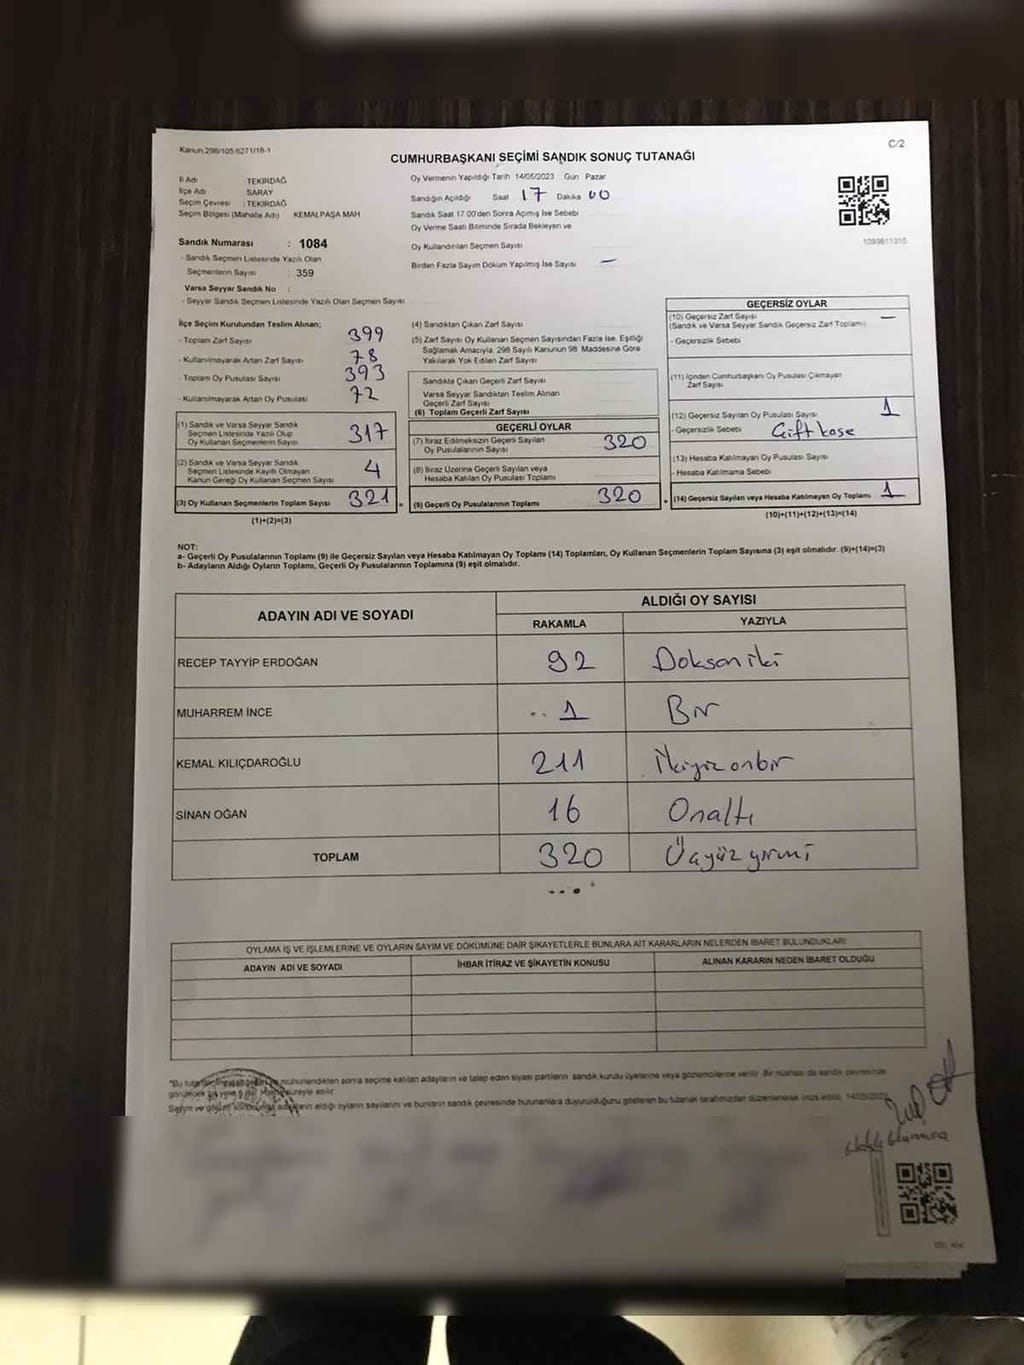 Kanun:298/105 6271/18-1
C/2
CUMHURBAŞKANI SEÇİMİ SANDIK SONUÇ TUTANAĞI
İl Adı : TEKİRDAĞ
İlçe Adı : SARAY
Seçim Çevresi : TEKİRDAĞ
Seçim Bölgesi (Mahalle Adı) KEMALPAŞA MAH
Sandık Numarası : 1084
- Sandık Seçmen Listesinde Yazılı Olan
Seçmenlerin Sayısı : 359
Varsa Seyyar Sandık No :
- Seyyar Sandık Seçmen Listesinde Yazılı Olan Seçmen Sayısı
Oy Vermenin Yapıldığı Tarih 14/05/2023 Gün Pazar
Sandığın Açıldığı Saat 17 Dakika 00
Sandık Saat 17.00'den Sonra Açılmış İse Sebebi
Oy Verme Saati Bitiminde Sırada Bekleyen ve
Oy Kullandırılan Seçmen Sayısı
Birden Fazla Sayım Döküm Yapılmış İse Sayısı —
1093611315
İlçe Seçim Kurulundan Teslim Alınan;
- Toplam Zarf Sayısı 399
- Kullanılmayarak Artan Zarf Sayısı 78
- Toplam Oy Pusulası Sayısı 393
- Kullanılmayarak Artan Oy Pusulası 72
(1) Sandık ve Varsa Seyyar Sandık
Seçmen Listesinde Yazılı Olup
Oy Kullanan Seçmenlerin Sayısı 317
(2) Sandık ve Varsa Seyyar Sandık
Seçmen Listesinde Kayıtlı Olmayan
Kanun Gereği Oy Kullanan Seçmen Sayısı 4
(3) Oy Kullanan Seçmenlerin Toplam Sayısı 321 =
(1)+(2)=(3)
(4) Sandıktan Çıkan Zarf Sayısı
(5) Zarf Sayısı Oy Kullanan Seçmen Sayısından Fazla İse, Eşitliği
Sağlamak Amacıyla, 298 Sayılı Kanunun 98. Maddesine Göre
Yakılarak Yok Edilen Zarf Sayısı
Sandıkta Çıkan Geçerli Zarf Sayısı
Varsa Seyyar Sandıktan Teslim Alınan
Geçerli Zarf Sayısı
(6) Toplam Geçerli Zarf Sayısı
GEÇERLİ OYLAR
(7) İtiraz Edilmeksizin Geçerli Sayılan
Oy Pusulalarının Sayısı 320
(8) İtiraz Üzerine Geçerli Sayılan veya
Hesaba Katılan Oy Pusulası Toplamı
(9) Geçerli Oy Pusulalarının Toplamı 320
GEÇERSİZ OYLAR
(10) Geçersiz Zarf Sayısı —
(Sandık ve Varsa Seyyar Sandık Geçersiz Zarf Toplamı)
- Geçersizlik Sebebi
(11) İçinden Cumhurbaşkanı Oy Pusulası Çıkmayan
Zarf Sayısı
(12) Geçersiz Sayılan Oy Pusulası Sayısı 1
- Geçersizlik Sebebi Çift kaşe
(13) Hesaba Katılmayan Oy Pusulası Sayısı
- Hesaba Katılmama Sebebi
(14) Geçersiz Sayılan veya Hesaba Katılmayan Oy Toplamı 1
(10)+(11)+(12)+(13)=(14)
NOT:
a- Geçerli Oy Pusulalarının Toplamı (9) ile Geçersiz Sayılan veya Hesaba Katılmayan Oy Toplamı (14) Toplamları, Oy Kullanan Seçmenlerin Toplam Sayısına (3) eşit olmalıdır. (9)+(14)=(3)
b- Adayların Aldığı Oyların Toplamı, Geçerli Oy Pusulalarının Toplamına (9) eşit olmalıdır.
ADAYIN ADI VE SOYADI
ALDIĞI OY SAYISI
RAKAMLA YAZIYLA
RECEP TAYYİP ERDOĞAN 92 Doksan iki
MUHARREM İNCE 1 Bir
KEMAL KILIÇDAROĞLU 211 İkiyüz onbir
SİNAN OĞAN 16 Onaltı
TOPLAM 320 Üçyüz yirmi
OYLAMA İŞ VE İŞLEMLERİNE VE OYLARIN SAYIM VE DÖKÜMÜNE DAİR ŞİKAYETLERLE BUNLARA AİT KARARLARIN NELERDEN İBARET BULUNDUKLARI
ADAYIN ADI VE SOYADI İHBAR İTİRAZ VE ŞİKAYETİN KONUSU ALINAN KARARIN NEDEN İBARET OLDUĞU
mühürlendikten sonra seçime katılan adayların ve talep eden siyasi partilerin sandık kurulu üyelerine veya gözlemcilerine verilir. Bir nüshası da sandık çevresinde
adayların aldığı oyların sayılarını ve bunların sandık çevresinde bulunanlara duyurulduğunu gösteren bu tutanak tarafımızdan düzenlenerek imza edildi.